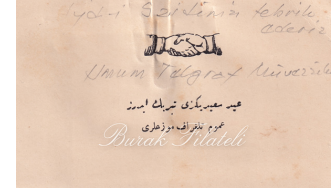 Iyd-i Saidinizi tebrik
ederiz
Umum Telgraf Müvezzileri
عید سعیدیكزی تبریك ایدرز
عموم تلغراف موزعلری
Burak Filateli